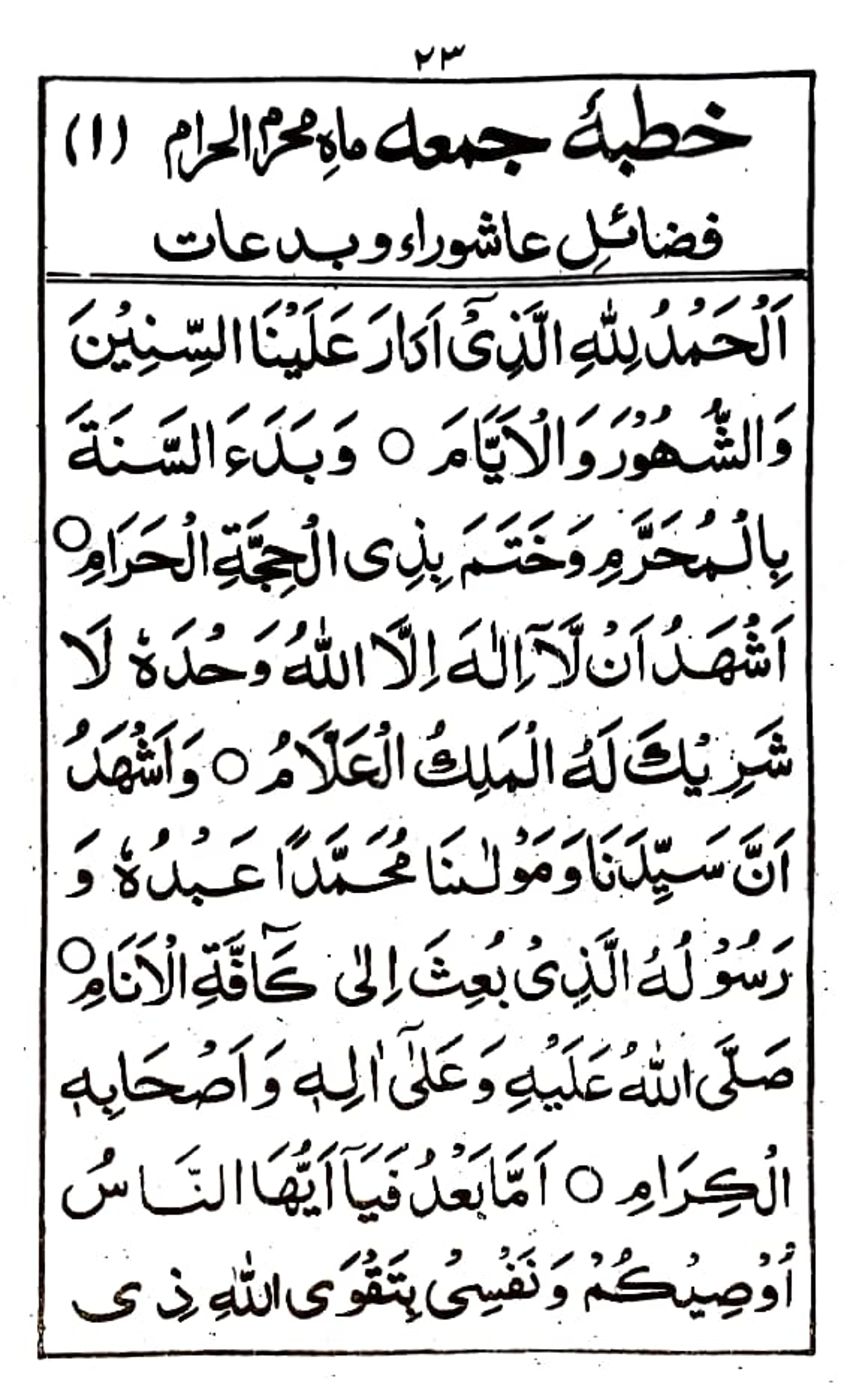 ٢٣
خطبۂ جمعہ ماہِ محرم الحرام (١)
فضائلِ عاشوراء و بدعات
اَلْحَمْدُ لِلّٰهِ الَّذِىْٓ اَدَارَ عَلَيْنَا السِّنِيْنَ
وَالشُّهُوْرَ وَالْاَيَّامَ ○ وَبَدَءَ السَّنَةَ
بِالْمُحَرَّمِ وَخَتَمَ بِذِى الْحِجَّةِ الْحَرَامِ ○
اَشْهَدُ اَنْ لَّآ اِلٰهَ اِلَّا اللّٰهُ وَحْدَهٗ لَا
شَرِيْكَ لَهُ الْمَلِكُ الْعَلَّامُ ○ وَاَشْهَدُ
اَنَّ سَيِّدَنَا وَمَوْلٰىنَا مُحَمَّدًا عَبْدُهٗ وَ
رَسُوْلُهُ الَّذِىْ بُعِثَ اِلٰى كَآفَّةِ الْاَنَامِ ○
صَلَّى اللّٰهُ عَلَيْهِ وَعَلٰىٓ اٰلِهٖ وَاَصْحَابِهٖ
الْكِرَامِ ○ اَمَّا بَعْدُ فَيَآ اَيُّهَا النَّاسُ
اُوْصِيْكُمْ وَنَفْسِىْ بِتَقْوَى اللّٰهِ ذِى